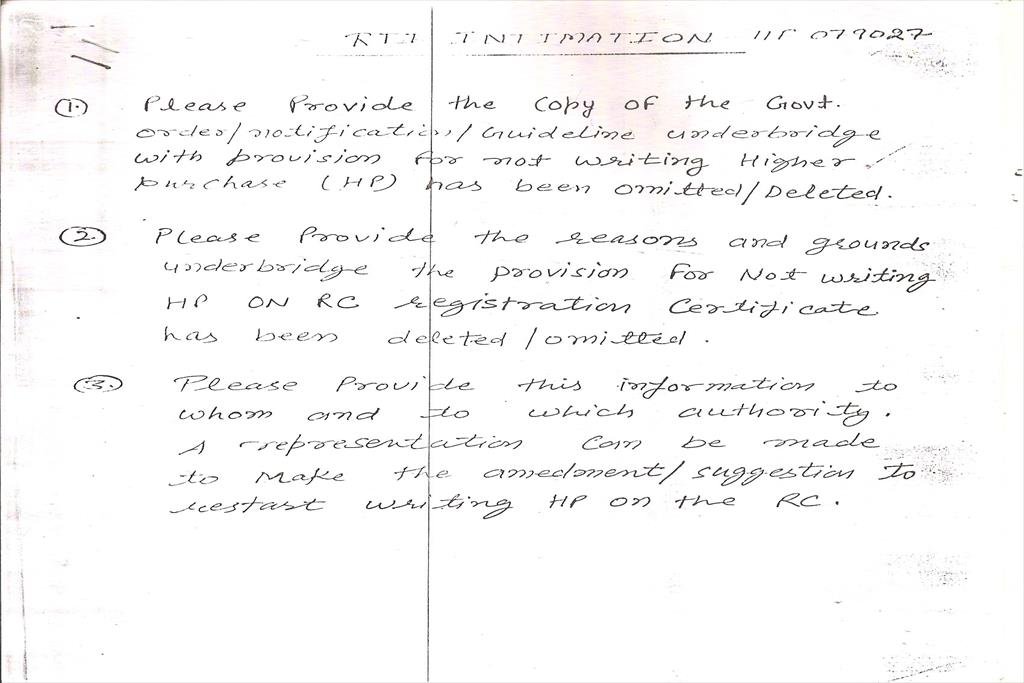 RTI INTIMATION 115 079027
1. Please Provide the Copy of the Govt.
order/notification/Guideline underbridge
with provision for not writing Higher
purchase (HP) has been omitted/Deleted.
2. Please Provide the reasons and grounds
underbridge the provision for Not writing
HP ON RC registration Certificate
has been deleted/omitted.
3. Please Provide this information to
whom and to which authority.
A representation can be made
to Make the amedment/suggestion to
restart writing HP on the RC.